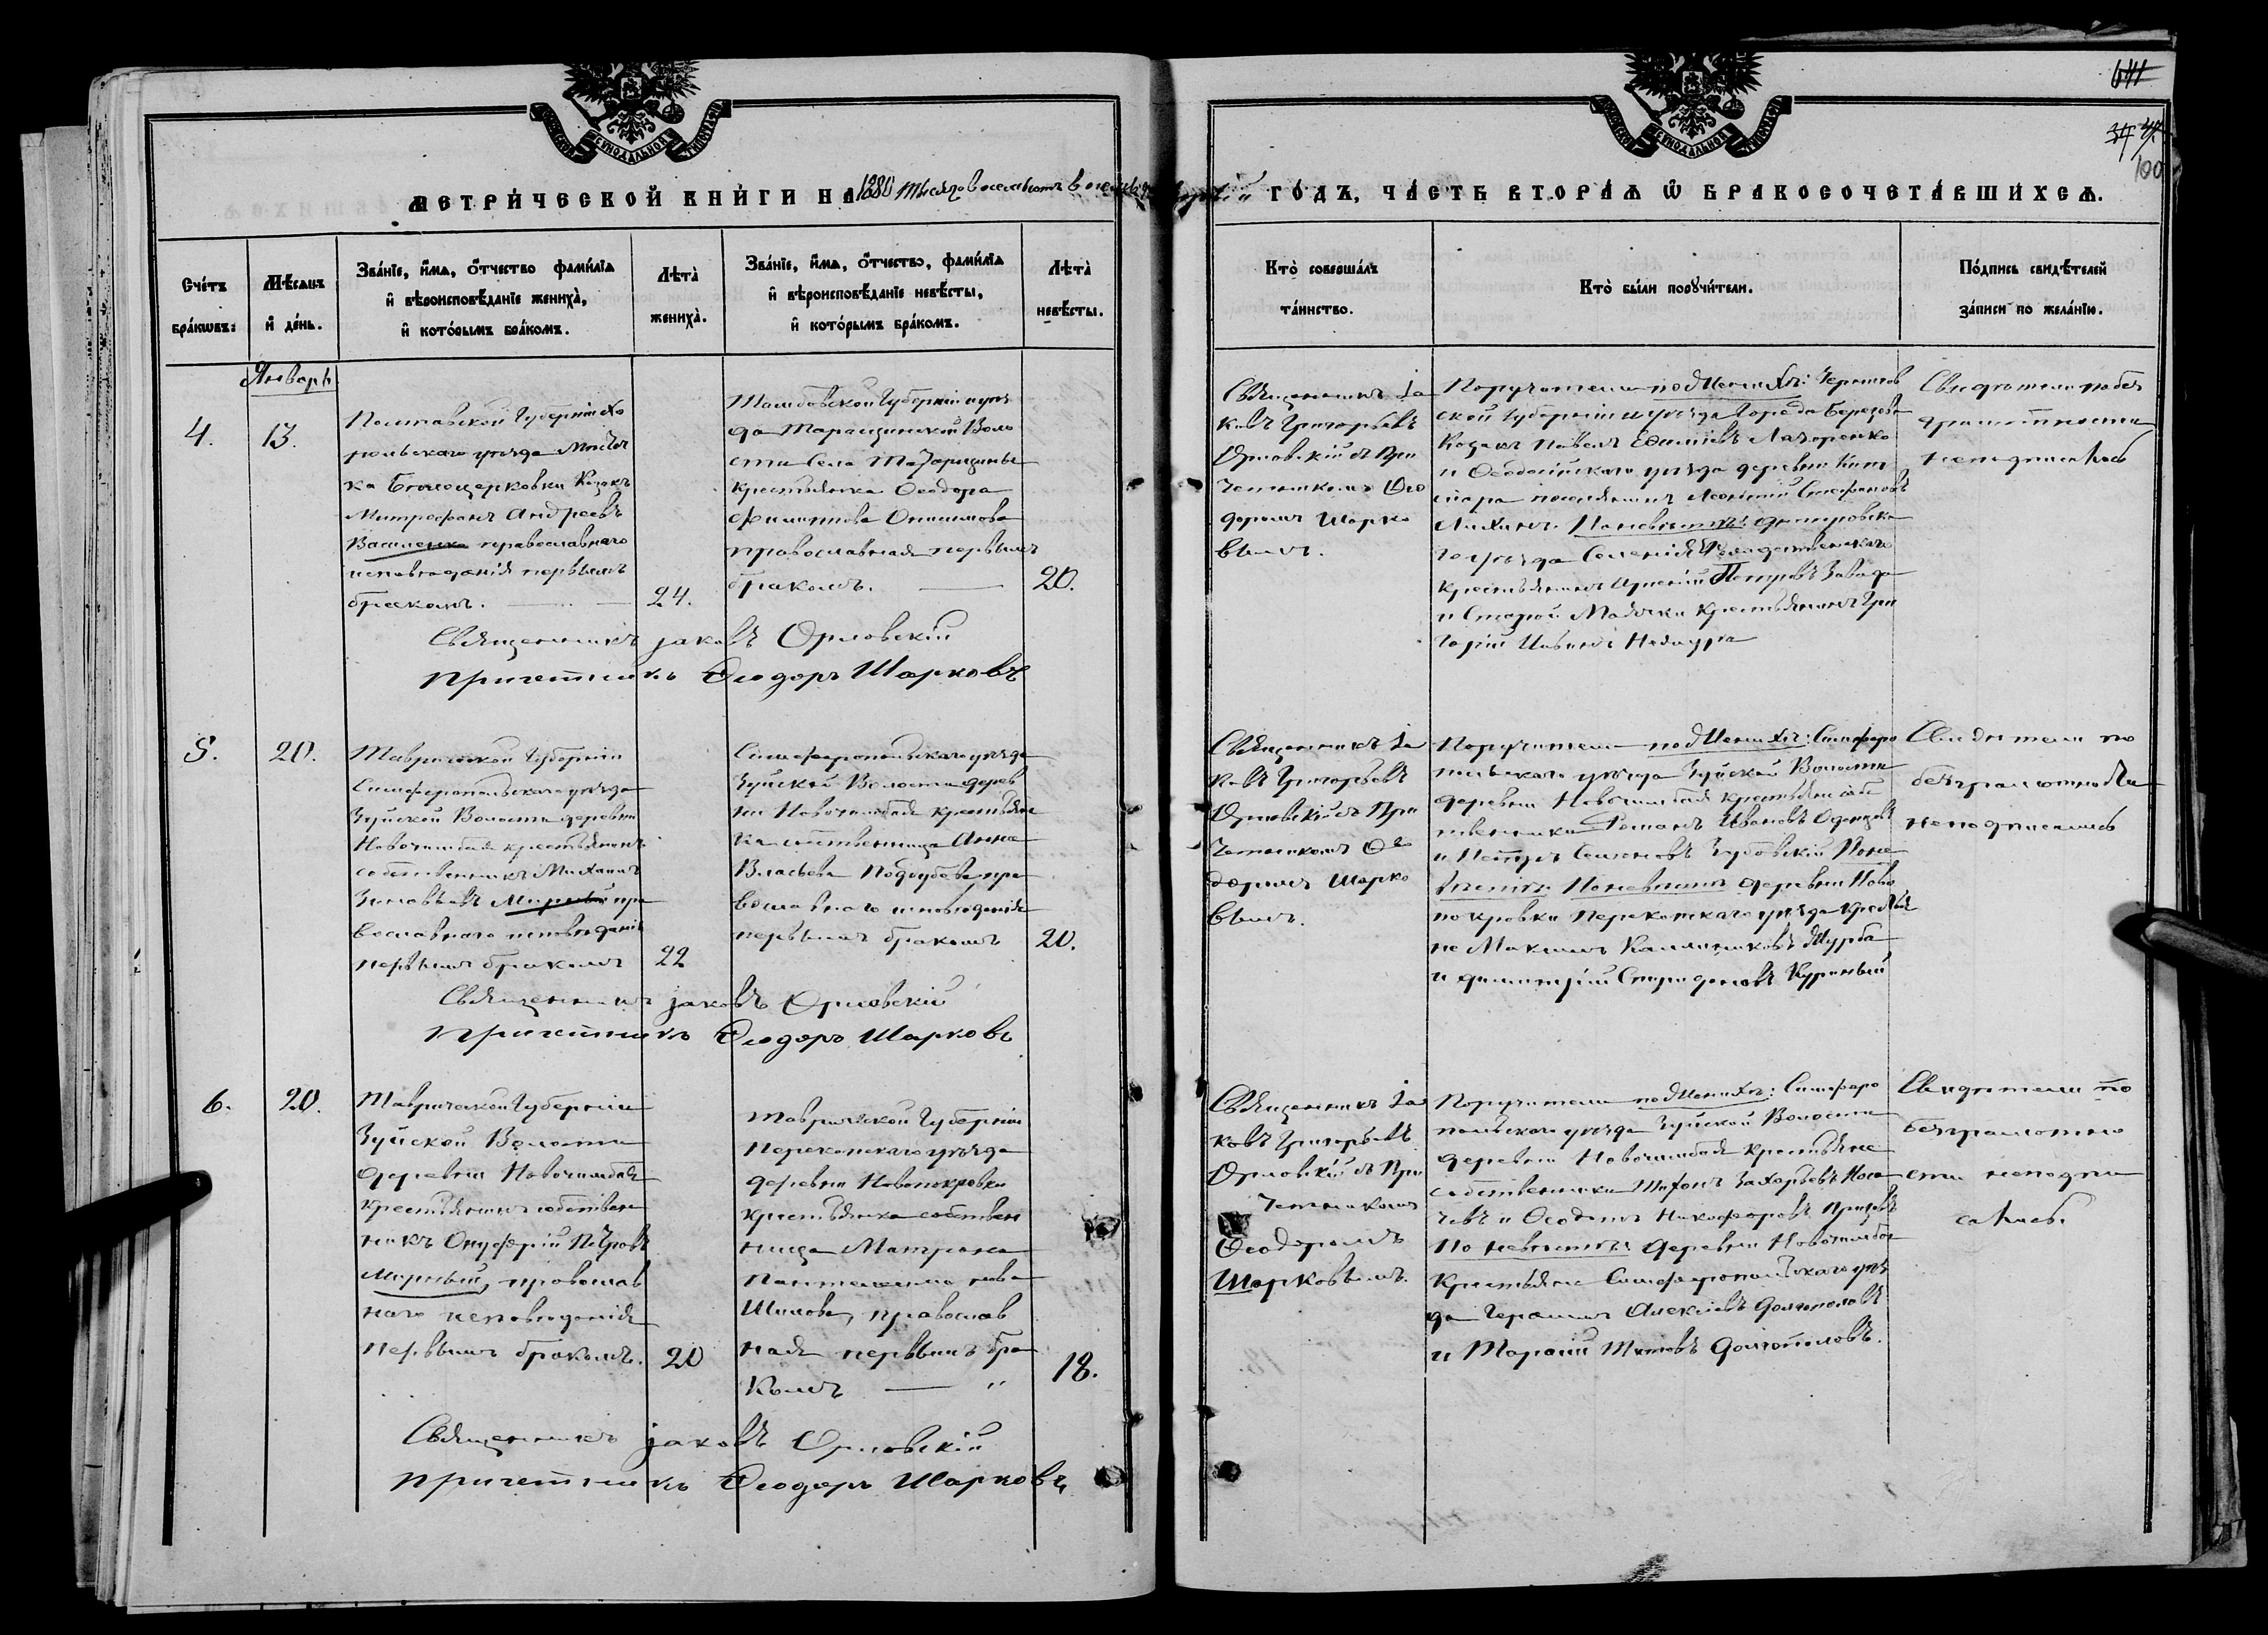 МЕТРИЧЕСКОЙ КНИГИ НА 1880
ГОДЪ, ЧАСТЬ ВТОРАЯ Ѡ БРАКОСОЧЕТАВШИХСЯ.
100
Счетъ браковъ:
Мѣсяцъ и день.
Званіе, имя, отчество фамилія
и вѣроисповѣданіе жениха,
и которымъ бракомъ.
Лѣта
жениха.
Званіе, имя, отчество, фамилія
и вѣроисповѣданіе невѣсты,
и которымъ бракомъ.
Лѣта
невѣсты.
Кто совершалъ
таинство.
Кто были поручители.
Подпись свидѣтелей
записи по желанію.
Январь
4.
13.
Полтавской Губерніи Хо
рольскаго уѣзда Мѣстеч
ка Бѣлоцерковки Козакъ
Митрофанъ Андреевъ
Василенко православнаго
исповѣданія первымъ
бракомъ.
24.
Тамбовской Губерніи и уѣз
да
сти Села
крестьянка Ѳеодора
Филиппова Онисимова
православная первымъ
бракомъ.
20.
Священникъ Іа
ковъ Григорьевъ
Орловскій съ При
четникомъ Ѳео
доромъ Шарко
вымъ.
Поручители под Женихѣ: Чернигов
ской Губерніи и уѣзда Города
Козакъ Павелъ Лазоренко
и Ѳеодосійскаго уѣзда деревни
поселянинъ Леонтій Стефановъ
По невѣстѣ: Днепровска
го уѣзда Селенія
крестьянинъ Петровъ Завада
и Старой Маячки Крестьянинъ Гри
горій Ивановъ
Свидѣтели по без
грамотности
неподписались
Священникъ Іаковъ Орловскій
Причетникъ Ѳеодоръ Шарковъ
5.
20.
Таврической Губерніи
Симферопольскаго уѣзда
Зуйской Волости деревни
Новочимбая крестьянинъ
собственникъ Михаилъ
Зиновьевъ Мирный пра
вославнаго исповѣданія
первымъ бракомъ
22
Симферопольскаго уѣзда
Зуйской Волости дерев
ни Новочимбая крестьян
ка собственница Анна
Власьева Поддубева пра
вославнаго исповѣданія
первымъ бракомъ
20.
Священникъ Іа
ковъ Григорьевъ
Орловскій съ При
четникомъ Ѳео
доромъ Шарко
вымъ.
Поручители под Женихѣ: Симферо
польскаго уѣзда Зуйской Волости
деревни Новочимбая крестьяни собс
твенники Романъ Ивановъ
и Петръ Семеновъ Зубовскій Поне
вѣстѣ: Поневѣстѣ деревни Ново
покровки Перекопскаго уѣзда крестья
не Максимъ Калинниковъ Журба
и Димитрій Спиридоновъ Куриный
Свидѣтели по
безграмотности
неподписались
Священникъ Іаковъ Орловскій
Причетникъ Ѳеодоръ Шарковъ
6.
20.
Таврической Губерніи
Зуйской Волости
деревни Новочимбая
крестьянинъ собствен
никъ Онуфрій Петровъ
Мирный, православ
наго исповѣданія
первымъ бракомъ.
20
Таврической Губерніи
Перекопскаго уѣзда
деревни Новопокровки
крестьянка собствен
ница Матрона
Пантелеимонова
Шилова, православ
ная первымъ бра
комъ
18.
Священникъ Іа
ковъ Григорьевъ
Орловскій съ При
четникомъ
Ѳеодоромъ
Шарковымъ.
Поручители под Женихѣ: Симферо
польскаго уѣзда Зуйской Волости
деревни Новочимбая Крестьяне
собственники Тихонъ Захарьевъ
и Ѳеодотъ Никифоровъ
По невѣстѣ: деревни Новочимбая
Крестьяне Симферопольскаго уѣз
да Герасимъ Алексіевъ Долгополовъ
и Тарасій Титовъ Долгополовъ.
Свидѣтели по
безграмотно
сти неподпи
сались.
Священникъ Іаковъ Орловскій
Причетникъ Ѳеодоръ Шарковъ